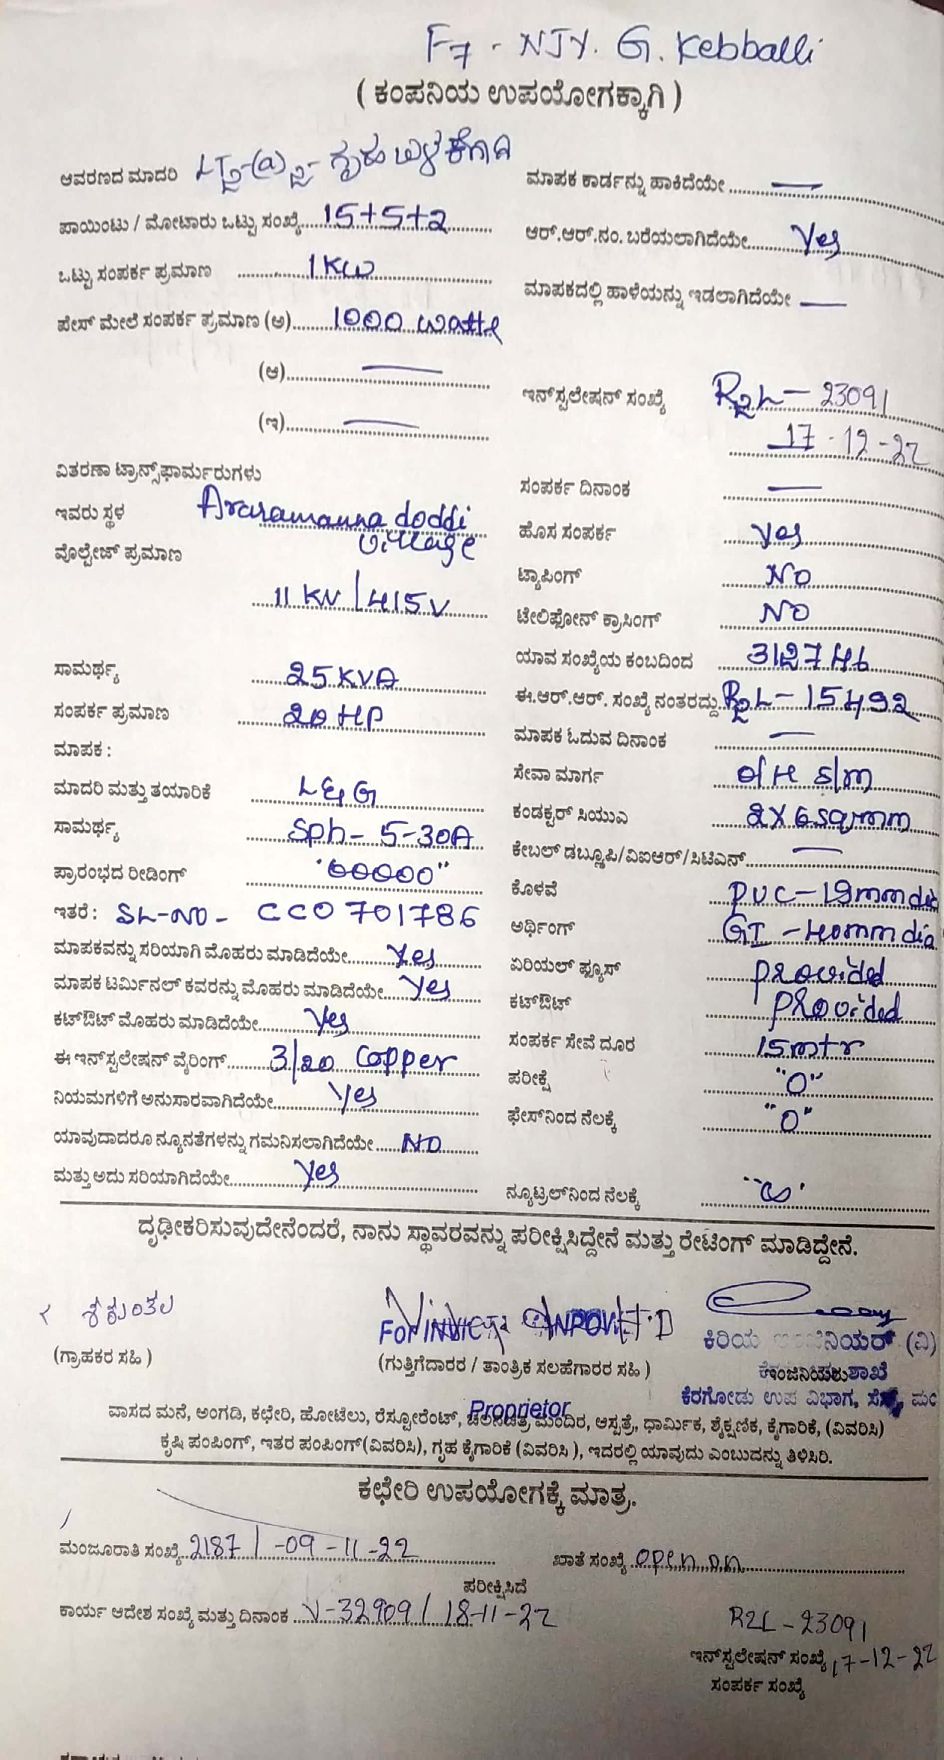 F7 - NJY. G. Kebballi
( ಕಂಪನಿಯ ಉಪಯೋಗಕ್ಕಾಗಿ )
ಆವರಣದ ಮಾದರಿ
ಮಾಪಕ ಕಾರ್ಡನ್ನು ಹಾಕಿದೆಯೇ ..........—
ಪಾಯಿಂಟು / ಮೋಟಾರು ಒಟ್ಟು ಸಂಖ್ಯೆ.....15+5+2
ಆರ್.ಆರ್.ನಂ. ಬರೆಯಲಾಗಿದೆಯೇ......... Yes
ಒಟ್ಟು ಸಂಪರ್ಕ ಪ್ರಮಾಣ ..........1 KW
ಮಾಪಕದಲ್ಲಿ ಹಾಳೆಯನ್ನು ಇಡಲಾಗಿದೆಯೇ —
ಪೇಸ್ ಮೇಲೆ ಸಂಪರ್ಕ ಪ್ರಮಾಣ (ಅ).......1000 watts
(ಆ)..........—
(ಇ)..........—
ಇನ್‌ಸ್ಟಲೇಷನ್ ಸಂಖ್ಯೆ R2L - 23091
17-12-22
ವಿತರಣಾ ಟ್ರಾನ್ಸ್‌ಫಾರ್ಮರುಗಳು
ಸಂಪರ್ಕ ದಿನಾಂಕ —
ಇವರು ಸ್ಥಳ Araramanna doddi
village
ಹೊಸ ಸಂಪರ್ಕ yes
ವೊಲ್ಟೇಜ್ ಪ್ರಮಾಣ
11 KV / 415 V
ಟ್ಯಾಪಿಂಗ್ NO
ಟೇಲಿಫೋನ್ ಕ್ರಾಸಿಂಗ್ NO
ಸಾಮರ್ಥ್ಯ 25 KVA
ಯಾವ ಸಂಖ್ಯೆಯ ಕಂಬದಿಂದ
ಸಂಪರ್ಕ ಪ್ರಮಾಣ 20 HP
ಈ.ಆರ್.ಆರ್. ಸಂಖ್ಯೆ ನಂತರದ್ದು R2L - 15492
ಮಾಪಕ :
ಮಾಪಕ ಓದುವ ದಿನಾಂಕ —
ಮಾದರಿ ಮತ್ತು ತಯಾರಿಕೆ L&G
ಸೇವಾ ಮಾರ್ಗ O/H S/m
ಸಾಮರ್ಥ್ಯ Sph - 5-30A
ಕಂಡಕ್ಟರ್ ಸಿಯುಎ 2X6 sqmm
ಪ್ರಾರಂಭದ ರೀಡಿಂಗ್ "00000"
ಕೇಬಲ್ ಡಬ್ಲೂಪಿ/ವಿಐಆರ್/ಸಿಟಿಎನ್..........—
ಇತರೆ : SL-NO - CCO 701786
ಕೊಳವೆ PVC - 19mm dia
ಮಾಪಕವನ್ನು ಸರಿಯಾಗಿ ಮೊಹರು ಮಾಡಿದೆಯೇ...... Yes
ಅರ್ಥಿಂಗ್ GI - 40mm dia
ಮಾಪಕ ಟರ್ಮಿನಲ್ ಕವರನ್ನು ಮೊಹರು ಮಾಡಿದೆಯೇ... Yes
ಏರಿಯಲ್ ಫ್ಯೂಸ್ Provided
ಕಟ್‌ಔಟ್ ಮೊಹರು ಮಾಡಿದೆಯೇ........ Yes
ಕಟ್‌ಔಟ್ Provided
ಈ ಇನ್‌ಸ್ಟಲೇಷನ್ ವೈರಿಂಗ್...... 3/20 Copper
ಸಂಪರ್ಕ ಸೇವೆ ದೂರ 15 mtr
ನಿಯಮಗಳಿಗೆ ಅನುಸಾರವಾಗಿದೆಯೇ........ Yes
ಪರೀಕ್ಷೆ "0"
ಯಾವುದಾದರೂ ನ್ಯೂನತೆಗಳನ್ನು ಗಮನಿಸಲಾಗಿದೆಯೇ.... NO
ಫೇಸ್‌ನಿಂದ ನೆಲಕ್ಕೆ "0"
ಮತ್ತು ಅದು ಸರಿಯಾಗಿದೆಯೇ.......... Yes
ನ್ಯೂಟ್ರಲ್‌ನಿಂದ ನೆಲಕ್ಕೆ
ದೃಢೀಕರಿಸುವುದೇನೆಂದರೆ, ನಾನು ಸ್ಥಾವರವನ್ನು ಪರೀಕ್ಷಿಸಿದ್ದೇನೆ ಮತ್ತು ರೇಟಿಂಗ್ ಮಾಡಿದ್ದೇನೆ.
ಶಕುಂತಲ
For
ಕಿರಿಯ ಇಂಜಿನಿಯರ್ (ವಿ)
(ಗ್ರಾಹಕರ ಸಹಿ )
(ಗುತ್ತಿಗೆದಾರರ / ತಾಂತ್ರಿಕ ಸಲಹೆಗಾರರ ಸಹಿ )
ಇಂಜಿನಿಯರು ಶಾಖೆ
ಕೆರಗೋಡು ಉಪ ವಿಭಾಗ,
Proprietor
ವಾಸದ ಮನೆ, ಅಂಗಡಿ, ಕಛೇರಿ, ಹೋಟೆಲು, ರೆಸ್ಟೋರೆಂಟ್, ಚಲನಚಿತ್ರ ಮಂದಿರ, ಆಸ್ಪತ್ರೆ, ಧಾರ್ಮಿಕ, ಶೈಕ್ಷಣಿಕ, ಕೈಗಾರಿಕೆ, (ವಿವರಿಸಿ)
ಕೃಷಿ ಪಂಪಿಂಗ್, ಇತರ ಪಂಪಿಂಗ್(ವಿವರಿಸಿ), ಗೃಹ ಕೈಗಾರಿಕೆ (ವಿವರಿಸಿ ), ಇದರಲ್ಲಿ ಯಾವುದು ಎಂಬುದನ್ನು ತಿಳಿಸಿರಿ.
ಕಛೇರಿ ಉಪಯೋಗಕ್ಕೆ ಮಾತ್ರ.
ಮಂಜೂರಾತಿ ಸಂಖ್ಯೆ 2187 / -09-11-22
ಖಾತೆ ಸಂಖ್ಯೆ open on
ಪರೀಕ್ಷಿಸಿದೆ
ಕಾರ್ಯ ಆದೇಶ ಸಂಖ್ಯೆ ಮತ್ತು ದಿನಾಂಕ ... V-32909 / 18-11-22
R2L - 23091
ಇನ್‌ಸ್ಟಲೇಷನ್ ಸಂಖ್ಯೆ 17-12-22
ಸಂಪರ್ಕ ಸಂಖ್ಯೆ